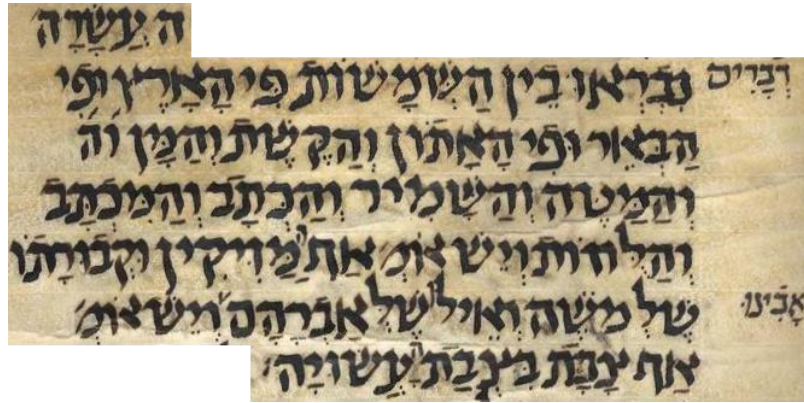 ה עֲשָׂרָה
דְבָרִים נִבְרְאוּ בֵין הַשְּׁמָשׁוֹת פִּי הָאָרֶץ וּפִי
הַבְּאֵר וּפִי הָאָתוֹן וְהַקֶּשֶׁת וְהַמָּן וה
וְהַמַּטֶּה וְהַשָּׁמִיר וְהַכְּתָב וְהַמִּכְתָּב
וְהַלּוּחוֹת וְיֵשׁ אוֹמְ' אַף מַזִּיקִין וּקְבוּרָתוֹ
אָבִינוּ שֶׁלְּמֹשֶׁה וְאֵילוֹ שֶׁלְּאַבְרָהָם וְיֵשׁ אוֹמְ'
אַף צְבָת בִּצְבָת עֲשׂוּיָה׃